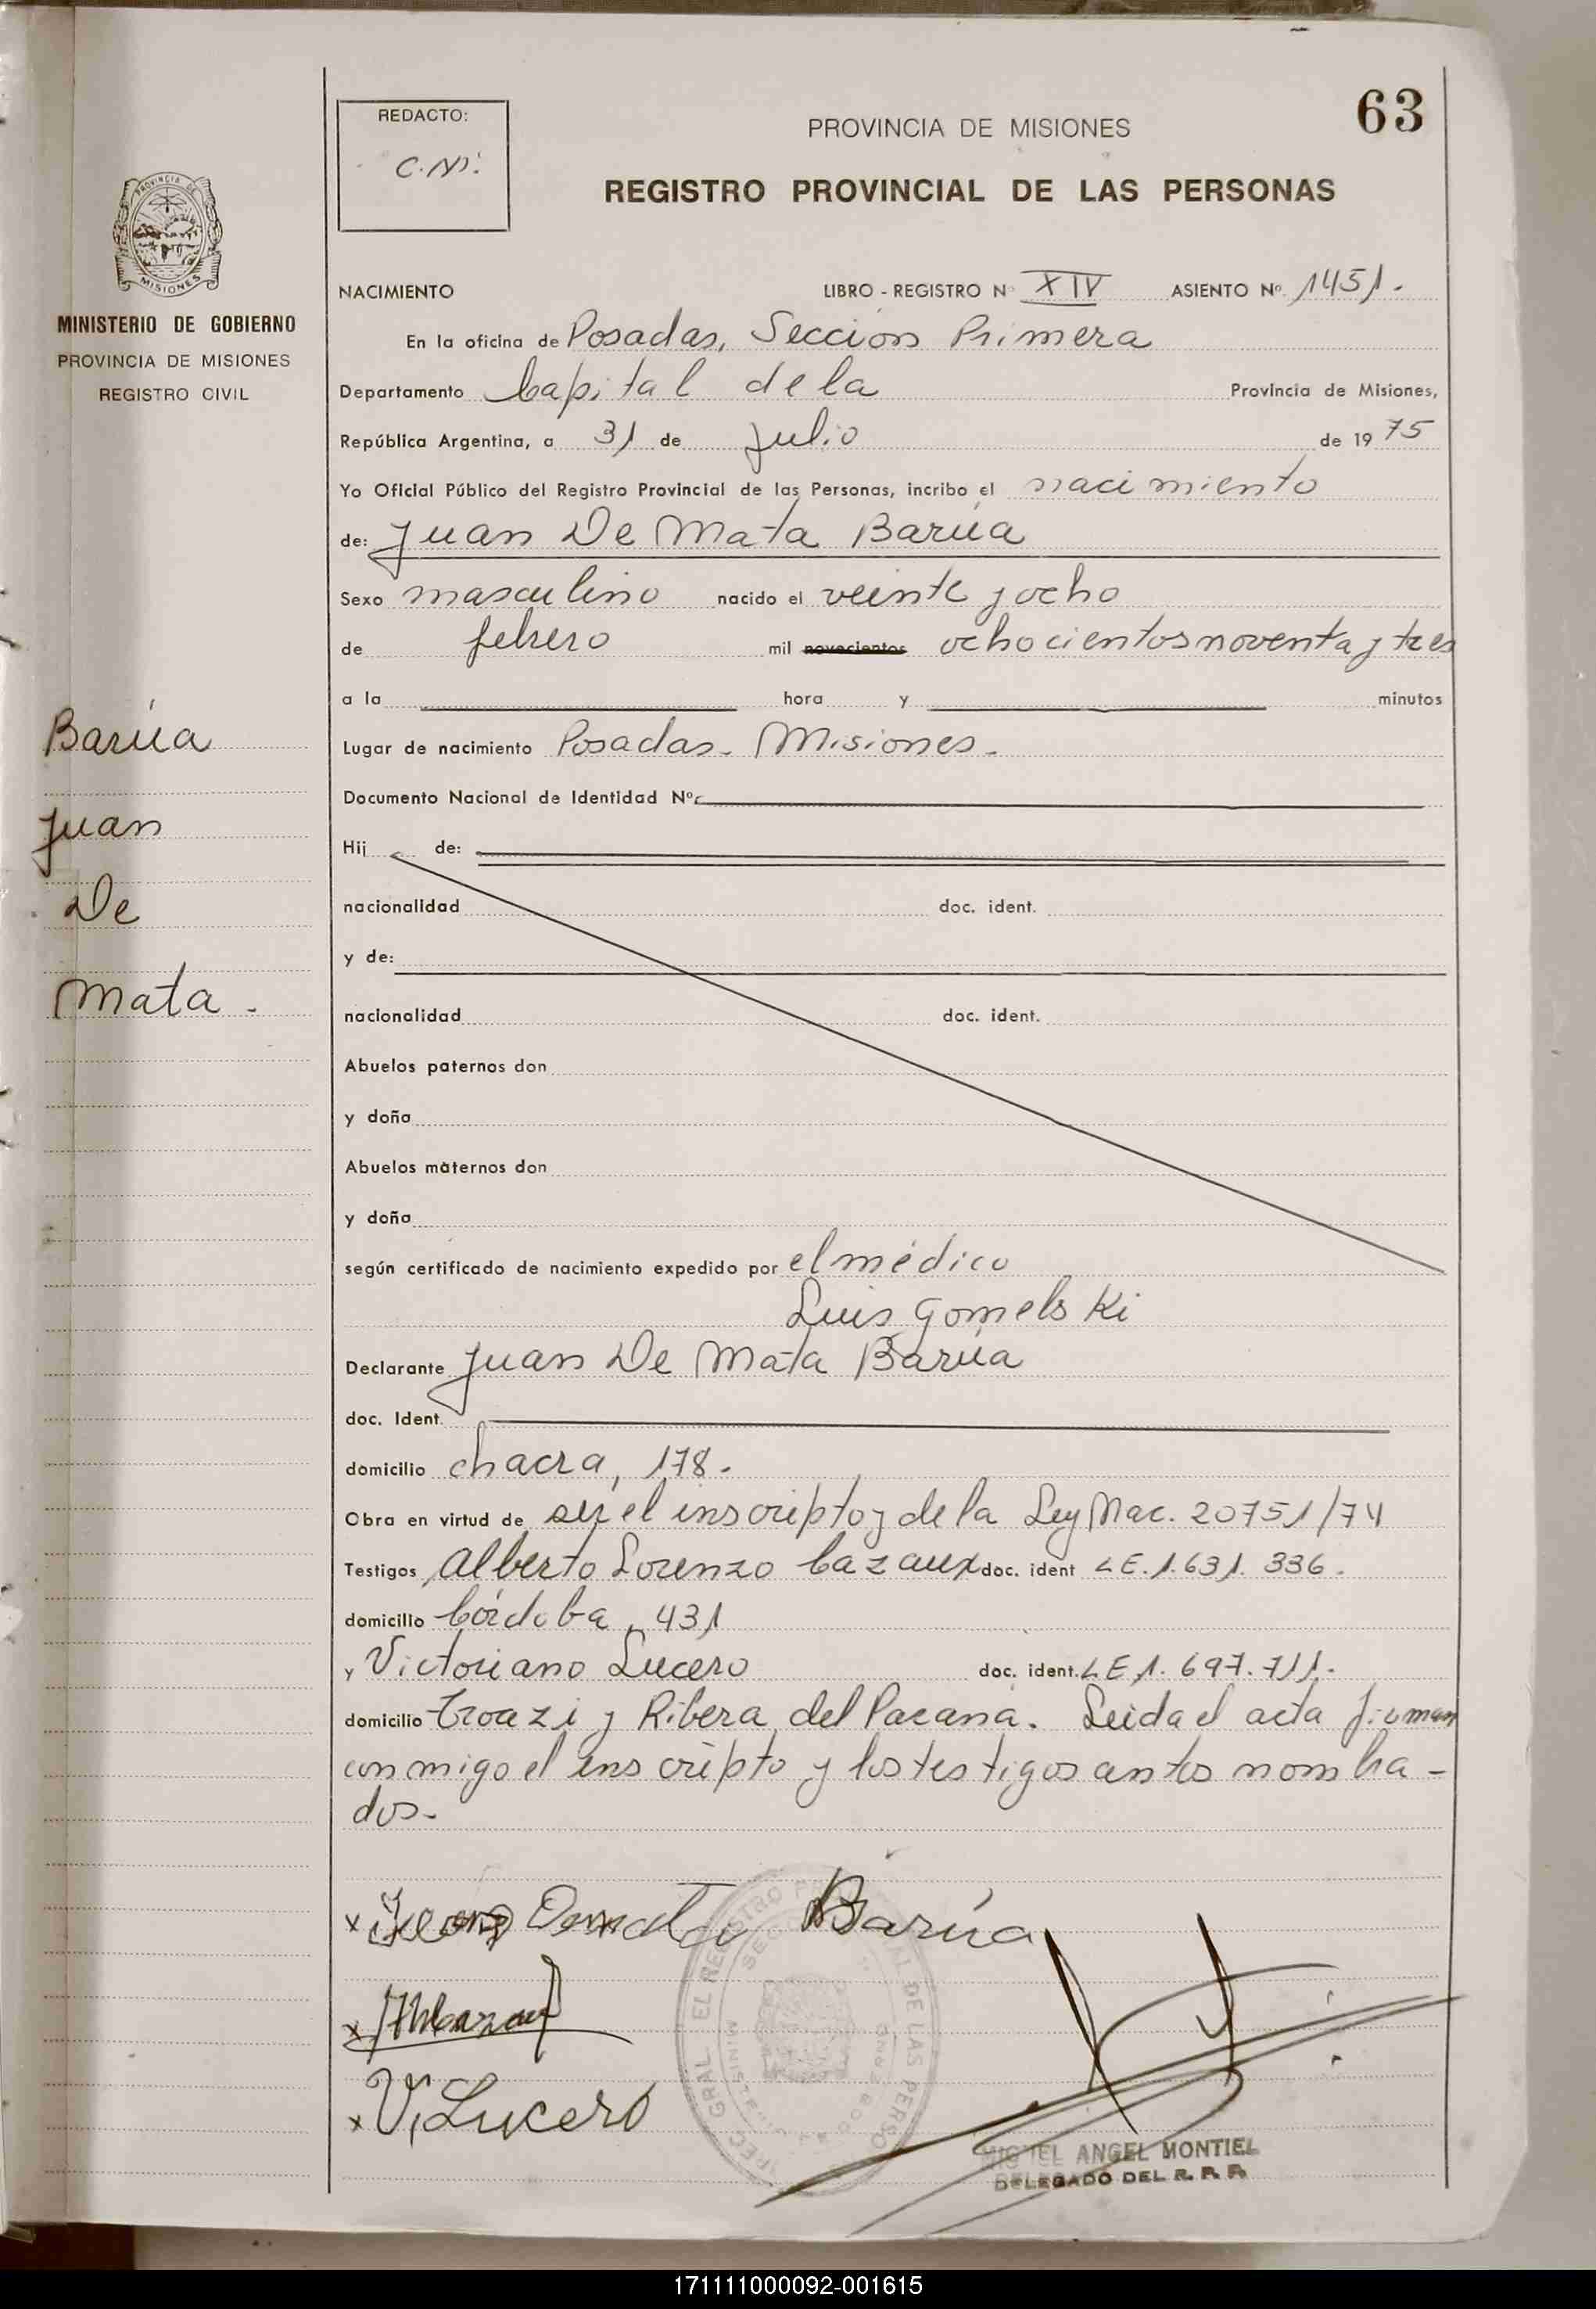 63
REDACTO:
C.N.
PROVINCIA DE MISIONES
REGISTRO PROVINCIAL DE LAS PERSONAS
MISIONES
MINISTERIO DE GOBIERNO
PROVINCIA DE MISIONES
REGISTRO CIVIL
NACIMIENTO LIBRO - REGISTRO Nº XIV ASIENTO Nº 1451.
En la oficina de Posadas, Sección Primera
Departamento Capital de la Provincia de Misiones,
República Argentina, a 31 de Julio de 1975
Yo Oficial Público del Registro Provincial de las Personas, incribo el nacimiento
de: Juan De Mata Barúa
Sexo masculino nacido el veinte y ocho
de febrero mil novecientos ochocientos noventa y tres
a la hora y minutos
Lugar de nacimiento Posadas - Misiones -
Documento Nacional de Identidad Nº
Hij de:
nacionalidad doc. ident.
y de:
nacionalidad doc. ident.
Abuelos paternos don
y doña
Abuelos maternos don
y doña
según certificado de nacimiento expedido por el médico
Luis Gomelski
Declarante Juan De Mata Barúa
doc. Ident.
domicilio chacra, 178.
Obra en virtud de ser el inscripto y de la Ley Nac. 20751/74
Testigos Alberto Lorenzo Cazaux doc. ident LE. 1.631.336.
domicilio Córdoba, 431
y Victoriano Lucero doc. ident. LE 1.697.711.
domicilio y Ribera del Paraná. Leida el acta firman
conmigo el inscripto y los testigos antes nombra-
dos.-
Barúa
Juan
De
Mata.
x Barúa
x
x V. Lucero
MIGUEL ANGEL MONTIEL
DELEGADO DEL R. P. P.
171111000092-001615